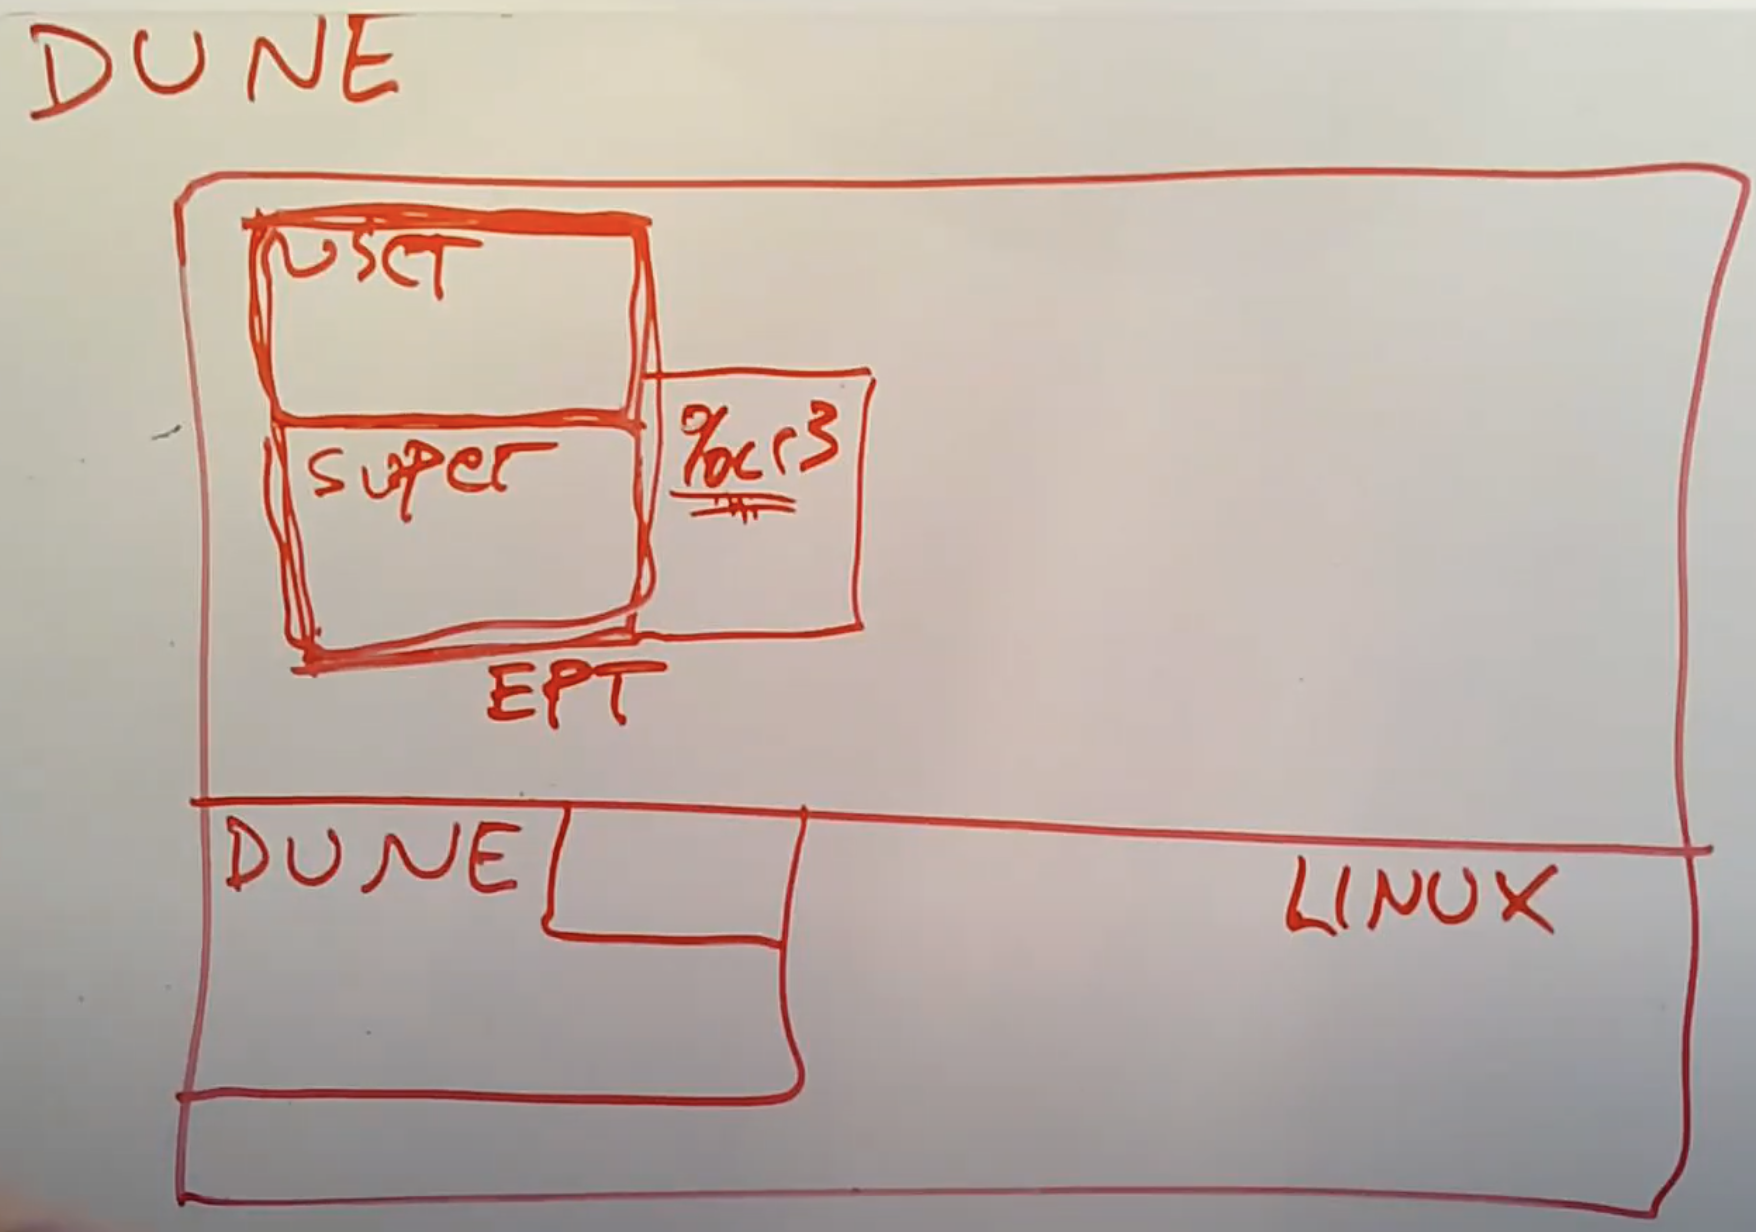 DUNE
user
super
%cr3
EPT
DUNE
LINUX